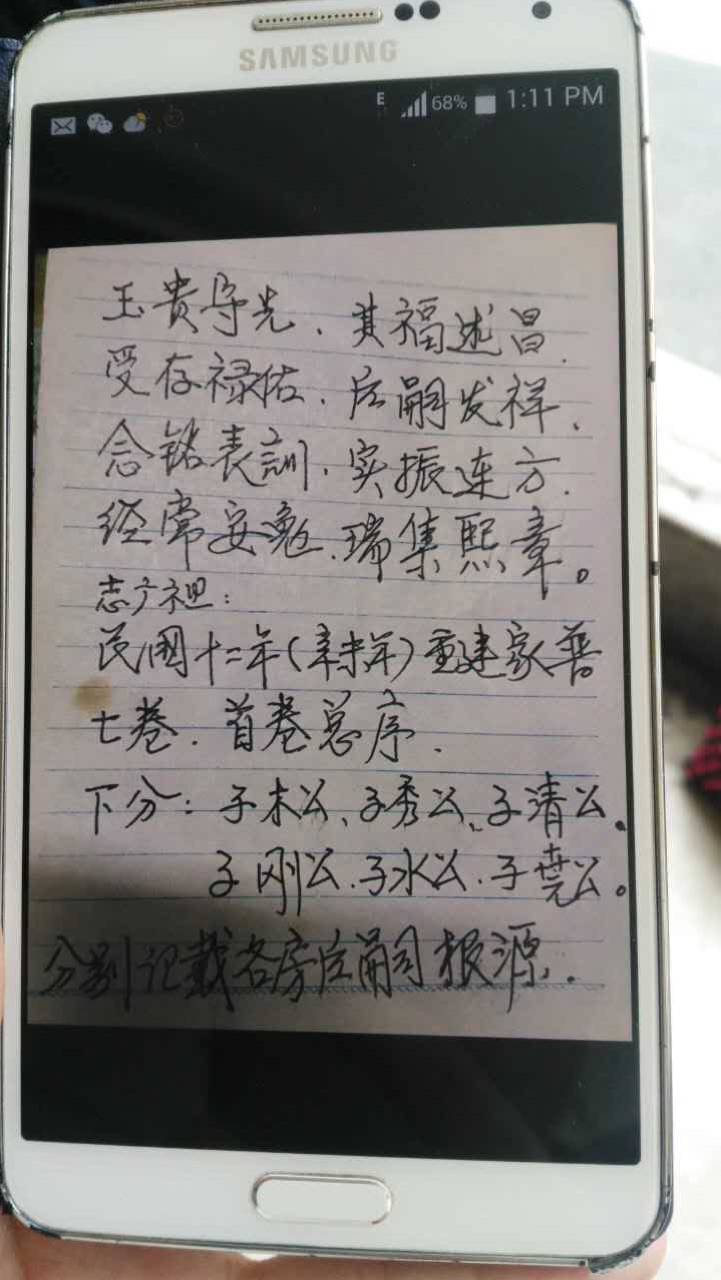 SAMSUNG
E 68% 1:11 PM
玉贵导先、其福述昌、
受存禄佑、后嗣发祥、
念铭表訓、实振连方、
经常安勉、瑞集熙章。
志广祖：
民國十二年（辛未年）重建家普
七卷、首卷总序、
下分：子木公、子秀公、子清公、
子刚公、子水公、子堯公。
分别记載各房后嗣根源、